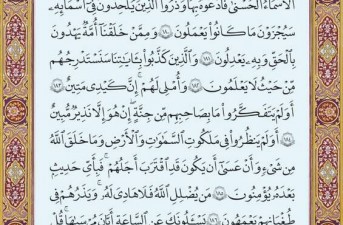 الْأَسْمَاءُ الْحُسْنَىٰ فَادْعُوهُ بِهَا وَذَرُوا الَّذِينَ يُلْحِدُونَ فِي أَسْمَائِهِ
سَيُجْزَوْنَ مَا كَانُوا يَعْمَلُونَ ١٨٠ وَمِمَّنْ خَلَقْنَا أُمَّةٌ يَهْدُونَ
بِالْحَقِّ وَبِهِ يَعْدِلُونَ ١٨١ وَالَّذِينَ كَذَّبُوا بِآيَاتِنَا سَنَسْتَدْرِجُهُم
مِّنْ حَيْثُ لَا يَعْلَمُونَ ١٨٢ وَأُمْلِي لَهُمْ إِنَّ كَيْدِي مَتِينٌ ١٨٣
أَوَلَمْ يَتَفَكَّرُوا مَا بِصَاحِبِهِم مِّن جِنَّةٍ إِنْ هُوَ إِلَّا نَذِيرٌ مُّبِينٌ
١٨٤ أَوَلَمْ يَنظُرُوا فِي مَلَكُوتِ السَّمَٰوَٰتِ وَالْأَرْضِ وَمَا خَلَقَ اللَّهُ
مِن شَيْءٍ وَأَنْ عَسَىٰ أَن يَكُونَ قَدِ اقْتَرَبَ أَجَلُهُمْ فَبِأَيِّ حَدِيثٍ
بَعْدَهُ يُؤْمِنُونَ ١٨٥ مَن يُضْلِلِ اللَّهُ فَلَا هَادِيَ لَهُ وَيَذَرُهُمْ فِي
طُغْيَانِهِمْ يَعْمَهُونَ ١٨٦ يَسْأَلُونَكَ عَنِ السَّاعَةِ أَيَّانَ مُرْسَاهَا قُلْ